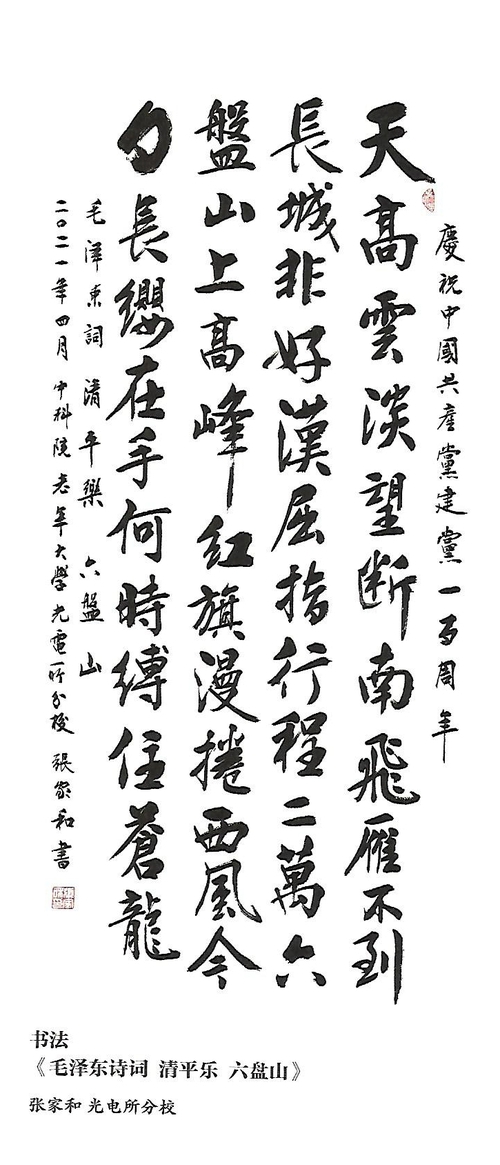 慶祝中國共產黨建黨一百周年
天高雲淡望断南飛雁不到
長城非好漢屈指行程二萬六
盤山上高峰紅旗漫捲西風今
日長纓在手何時縛住蒼龍
毛澤東詞 清平樂 六盤山
二〇二一年四月 中科院老年大學光電所分校 張家和書
书法
《毛泽东诗词 清平乐 六盘山》
张家和 光电所分校